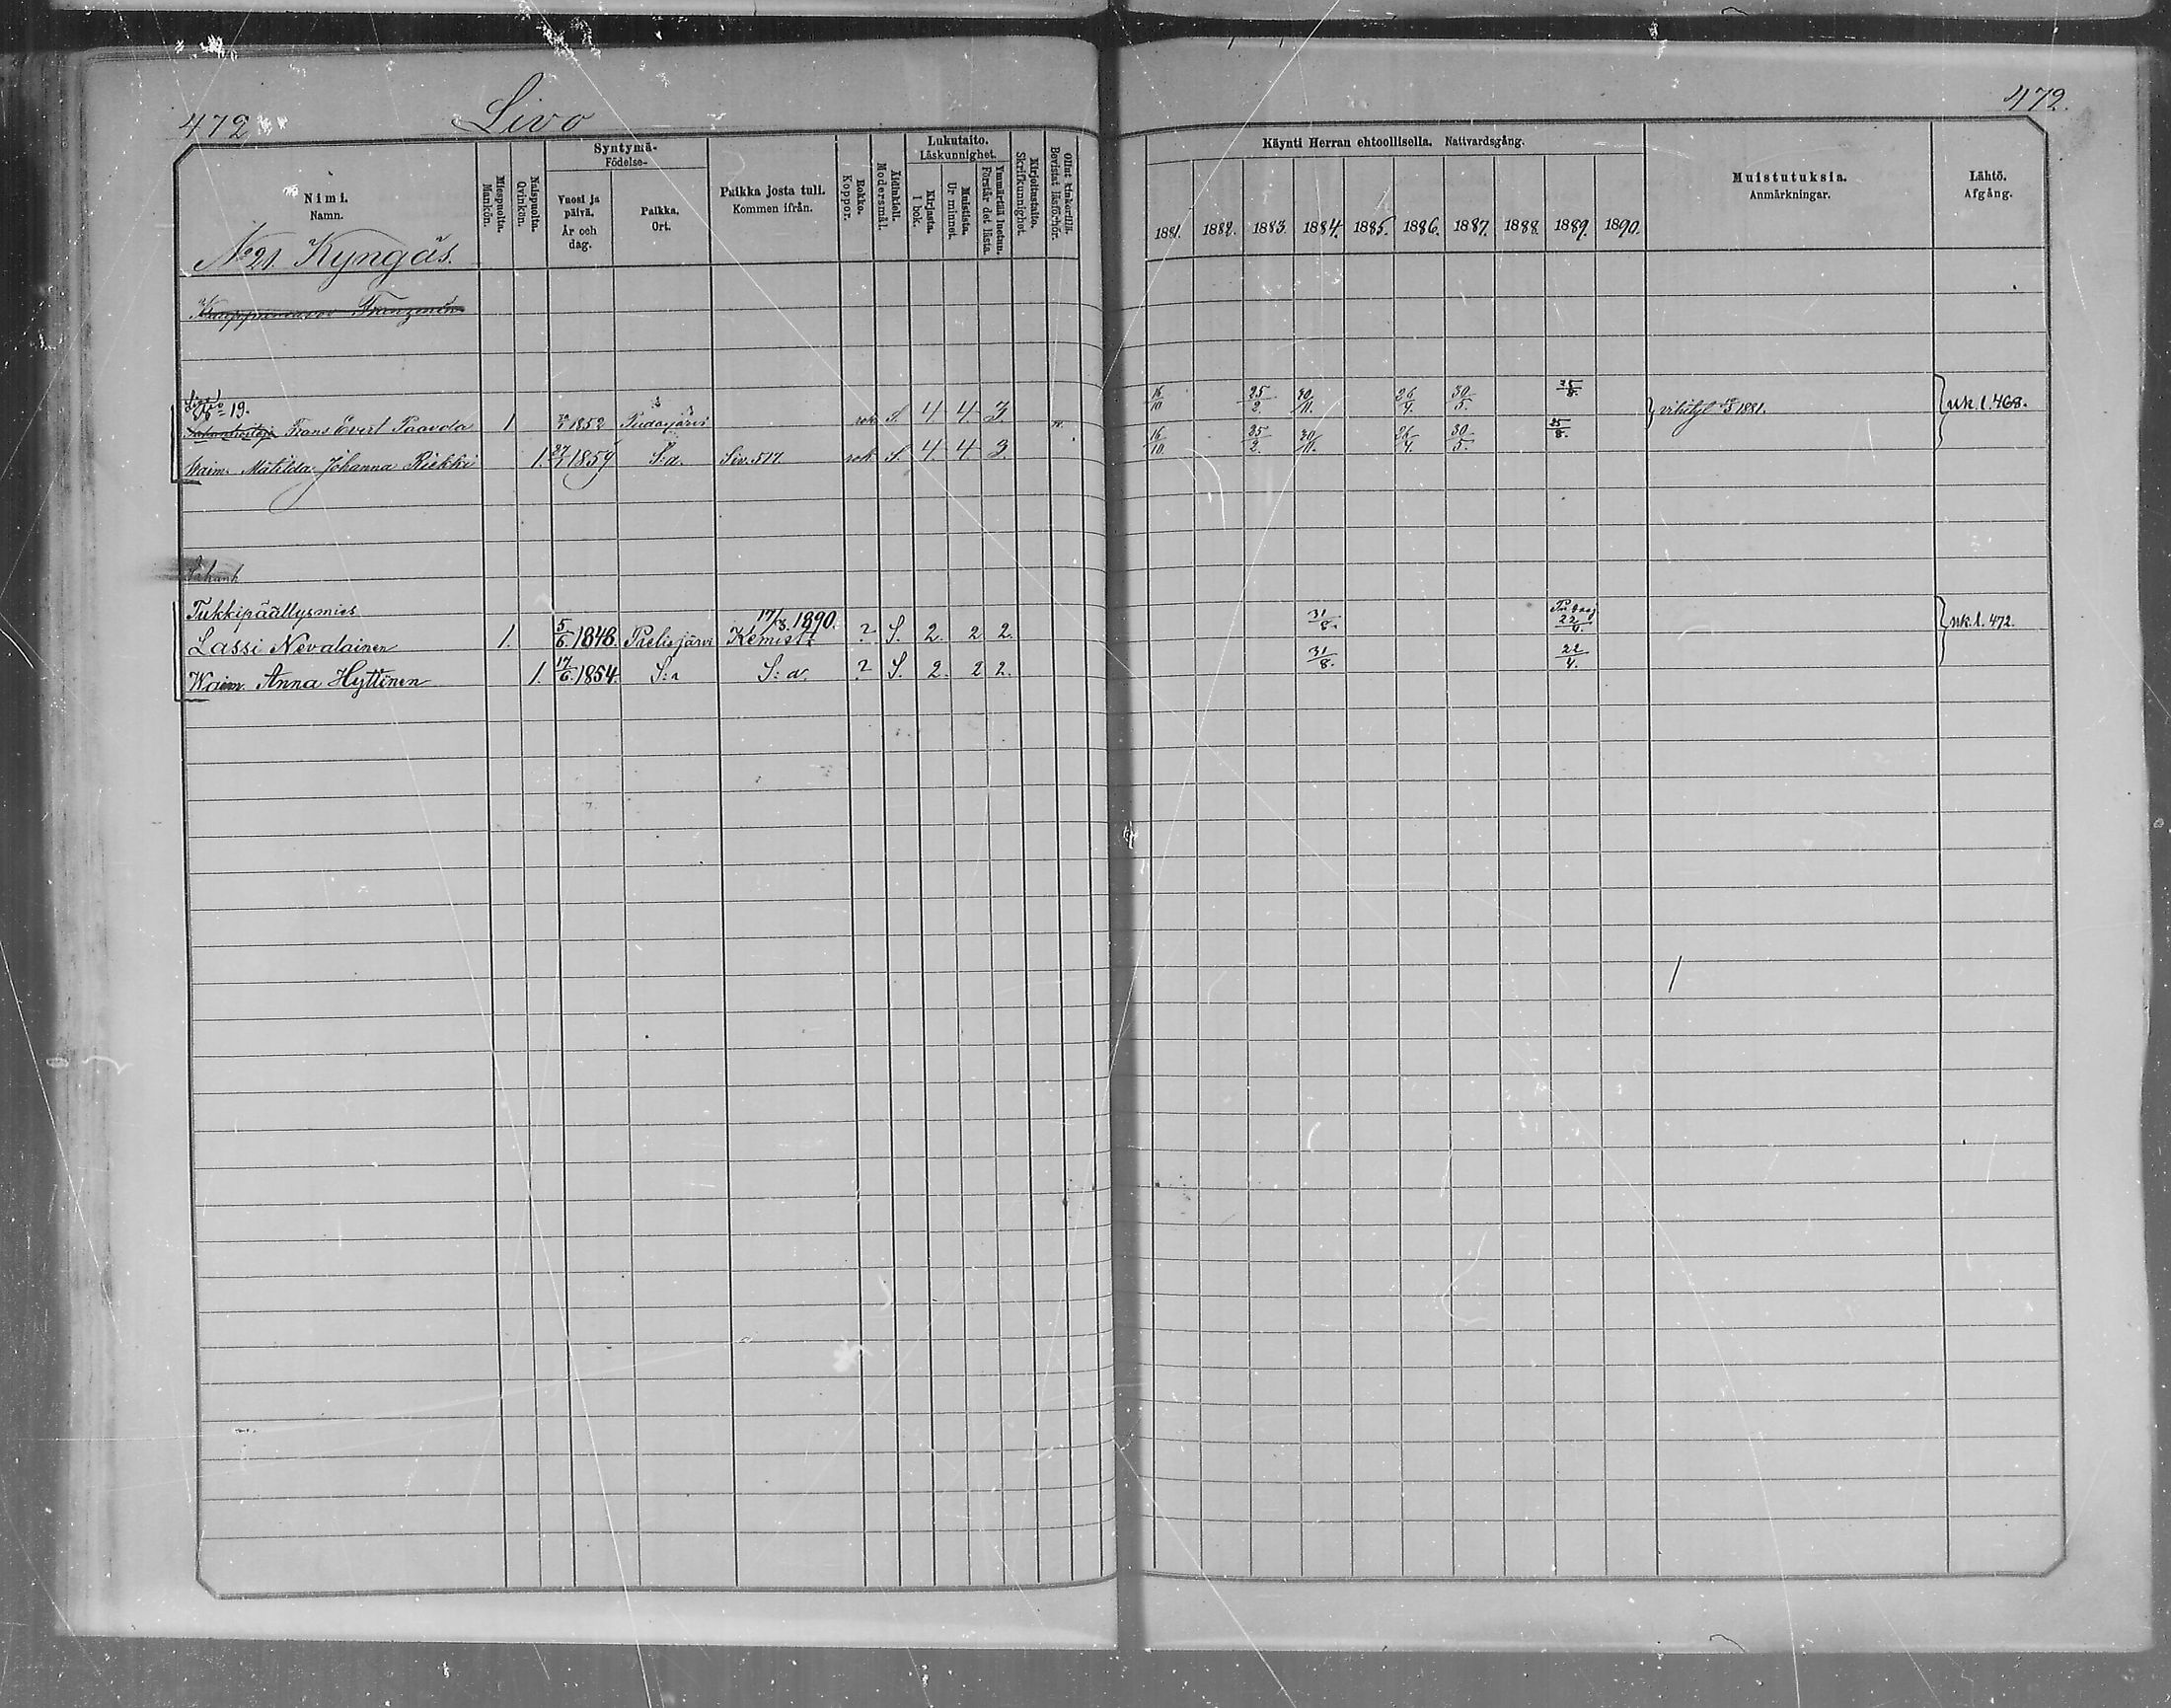 472
Livo
472.
Nimi.
Namn.
Miespuolta.
Mankön.
Naispuolta.
Qvinkön.
Syntymä-
Födelse-
Vuosi ja
päivä.
År och
dag.
Paikka.
Ort.
Paikka josta tuli.
Kommen ifrån.
Rokko.
Koppor.
Äidinkieli.
Modersmål.
Lukutaito.
Läskunnighet.
Kirjasta.
I bok.
Muistista.
Ur minnet.
Ymmärtää luetun.
Förstår det lästa.
Kirjoitustaito.
Skrifkunnighet.
Ollut kinkerillä.
Bevistat läsförhör.
Käynti Herran ehtoollisella. Nattvardsgång.
1881. 1882. 1883. 1884. 1885. 1886. 1887. 1888. 1889. 1890.
Muistutuksia.
Anmärkningar.
Lähtö.
Afgång.
No 21. Kyngäs.
Livo
No 19.
Frans Evert Paavola 1 1852 Pudasjärvi rok. S. 4 4. 3. 16/10 25/2. 30/11. 26/4. 30/5. 25/8. 1881. uk. l. 468.
Waim. Matilda Johanna Riekki 1. 27/7 1859 S:a. Siv. 517. rok S. 4 4 3. 16/10 25/2. 30/11. 26/4. 30/5. 25/8.
Tukkipäällysmies
Lassi Nevalainen 1. 5/6. 1848. Pielisjärvi 17/3. 1890. Kemistä ? S. 2. 2 2. 31/8. 22/4. uk. l. 472.
Waim. Anna Hyttinen 1. 17/6. 1854. S:a S:a. ? S. 2. 2 2. 31/8. 22/4.